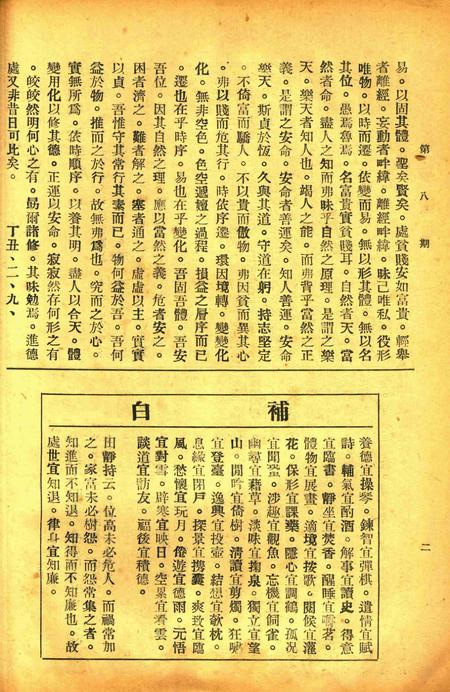 第八期
二
易。以固其體。聖矣賢矣。處貧賤安如富貴。輕舉
者離經。妄動者畔緯。離經畔緯。昧己唯私。役形
唯物。以時而遷。依變而易。無以形其體。無以名
其位。愚焉魯焉。名富貴實貧賤耳。自然者天。當
然者命。盡人之知而弗昧乎自然之原理。是謂之樂
天。樂天者知人也。竭人之能。而弗背乎當然之正
義。是謂之安命。安命者善運矣。知人善運。安命
樂天。斯貞於恆。久與其道。守道在躬。持志堅定
。不倚富而驕人。不以貴而傲物。弗因貧而異其心
。弗以賤而危其行。時依序遷。環因境轉。變變化
化。無非空色。色空遞嬗之過程。損益之層序而已
。遷也在乎時序。易也在乎變化。吾固吾體。吾安
吾位。因其自然之理。應以當然之義。危者安之。
困者濟之。難者解之。塞者通之。虛虛以主。實實
以貞。吾惟守其常行其素而已。物何益於吾。吾何
益於物。推而之於行。故無弗爲也。究而之於心。
實無所爲。依時順序。以養其明。盡人以合天。體
變用化以修其德。正運以安命。寂寂然存何形之有
。皎皎然明何心之有。勗爾諸修。其味勉焉。進德
處又非昔日可比矣。　　丁丑、二、九、
補白
養德宜操琴。鍊智宜彈棋。遣情宜賦
詩。輔氣宜酌酒。解事宜讀史。得意
宜臨書。靜坐宜焚香。醒睡宜嚼茗。
體物宜展畫。適境宜按歌。閱候宜灌
花。保形宜課藥。隱心宜調鶴。孤況
宜聞蛩。涉趣宜觀魚。忘機宜飼雀。
幽尋宜藉草。淡味宜掬泉。獨立宜望
山。閒吟宜倚樹。清讀宜剪燭。狂嘯
宜登臺。逸興宜投壺。結想宜欹枕。
息緣宜閉戶。探景宜携囊。爽致宜臨
風。愁懷宜玩月。倦遊宜德雨。元悟
宜對雪。辟寒宜映日。空累宜看雲。
談道宜訪友。福後宜積德。
田靜持云。位高未必危人。而禍常加
之。家富未必樹怨。而怨常集之者。
知進而不知退。知得而不知廉也。故
處世宜知退。律身宜知廉。